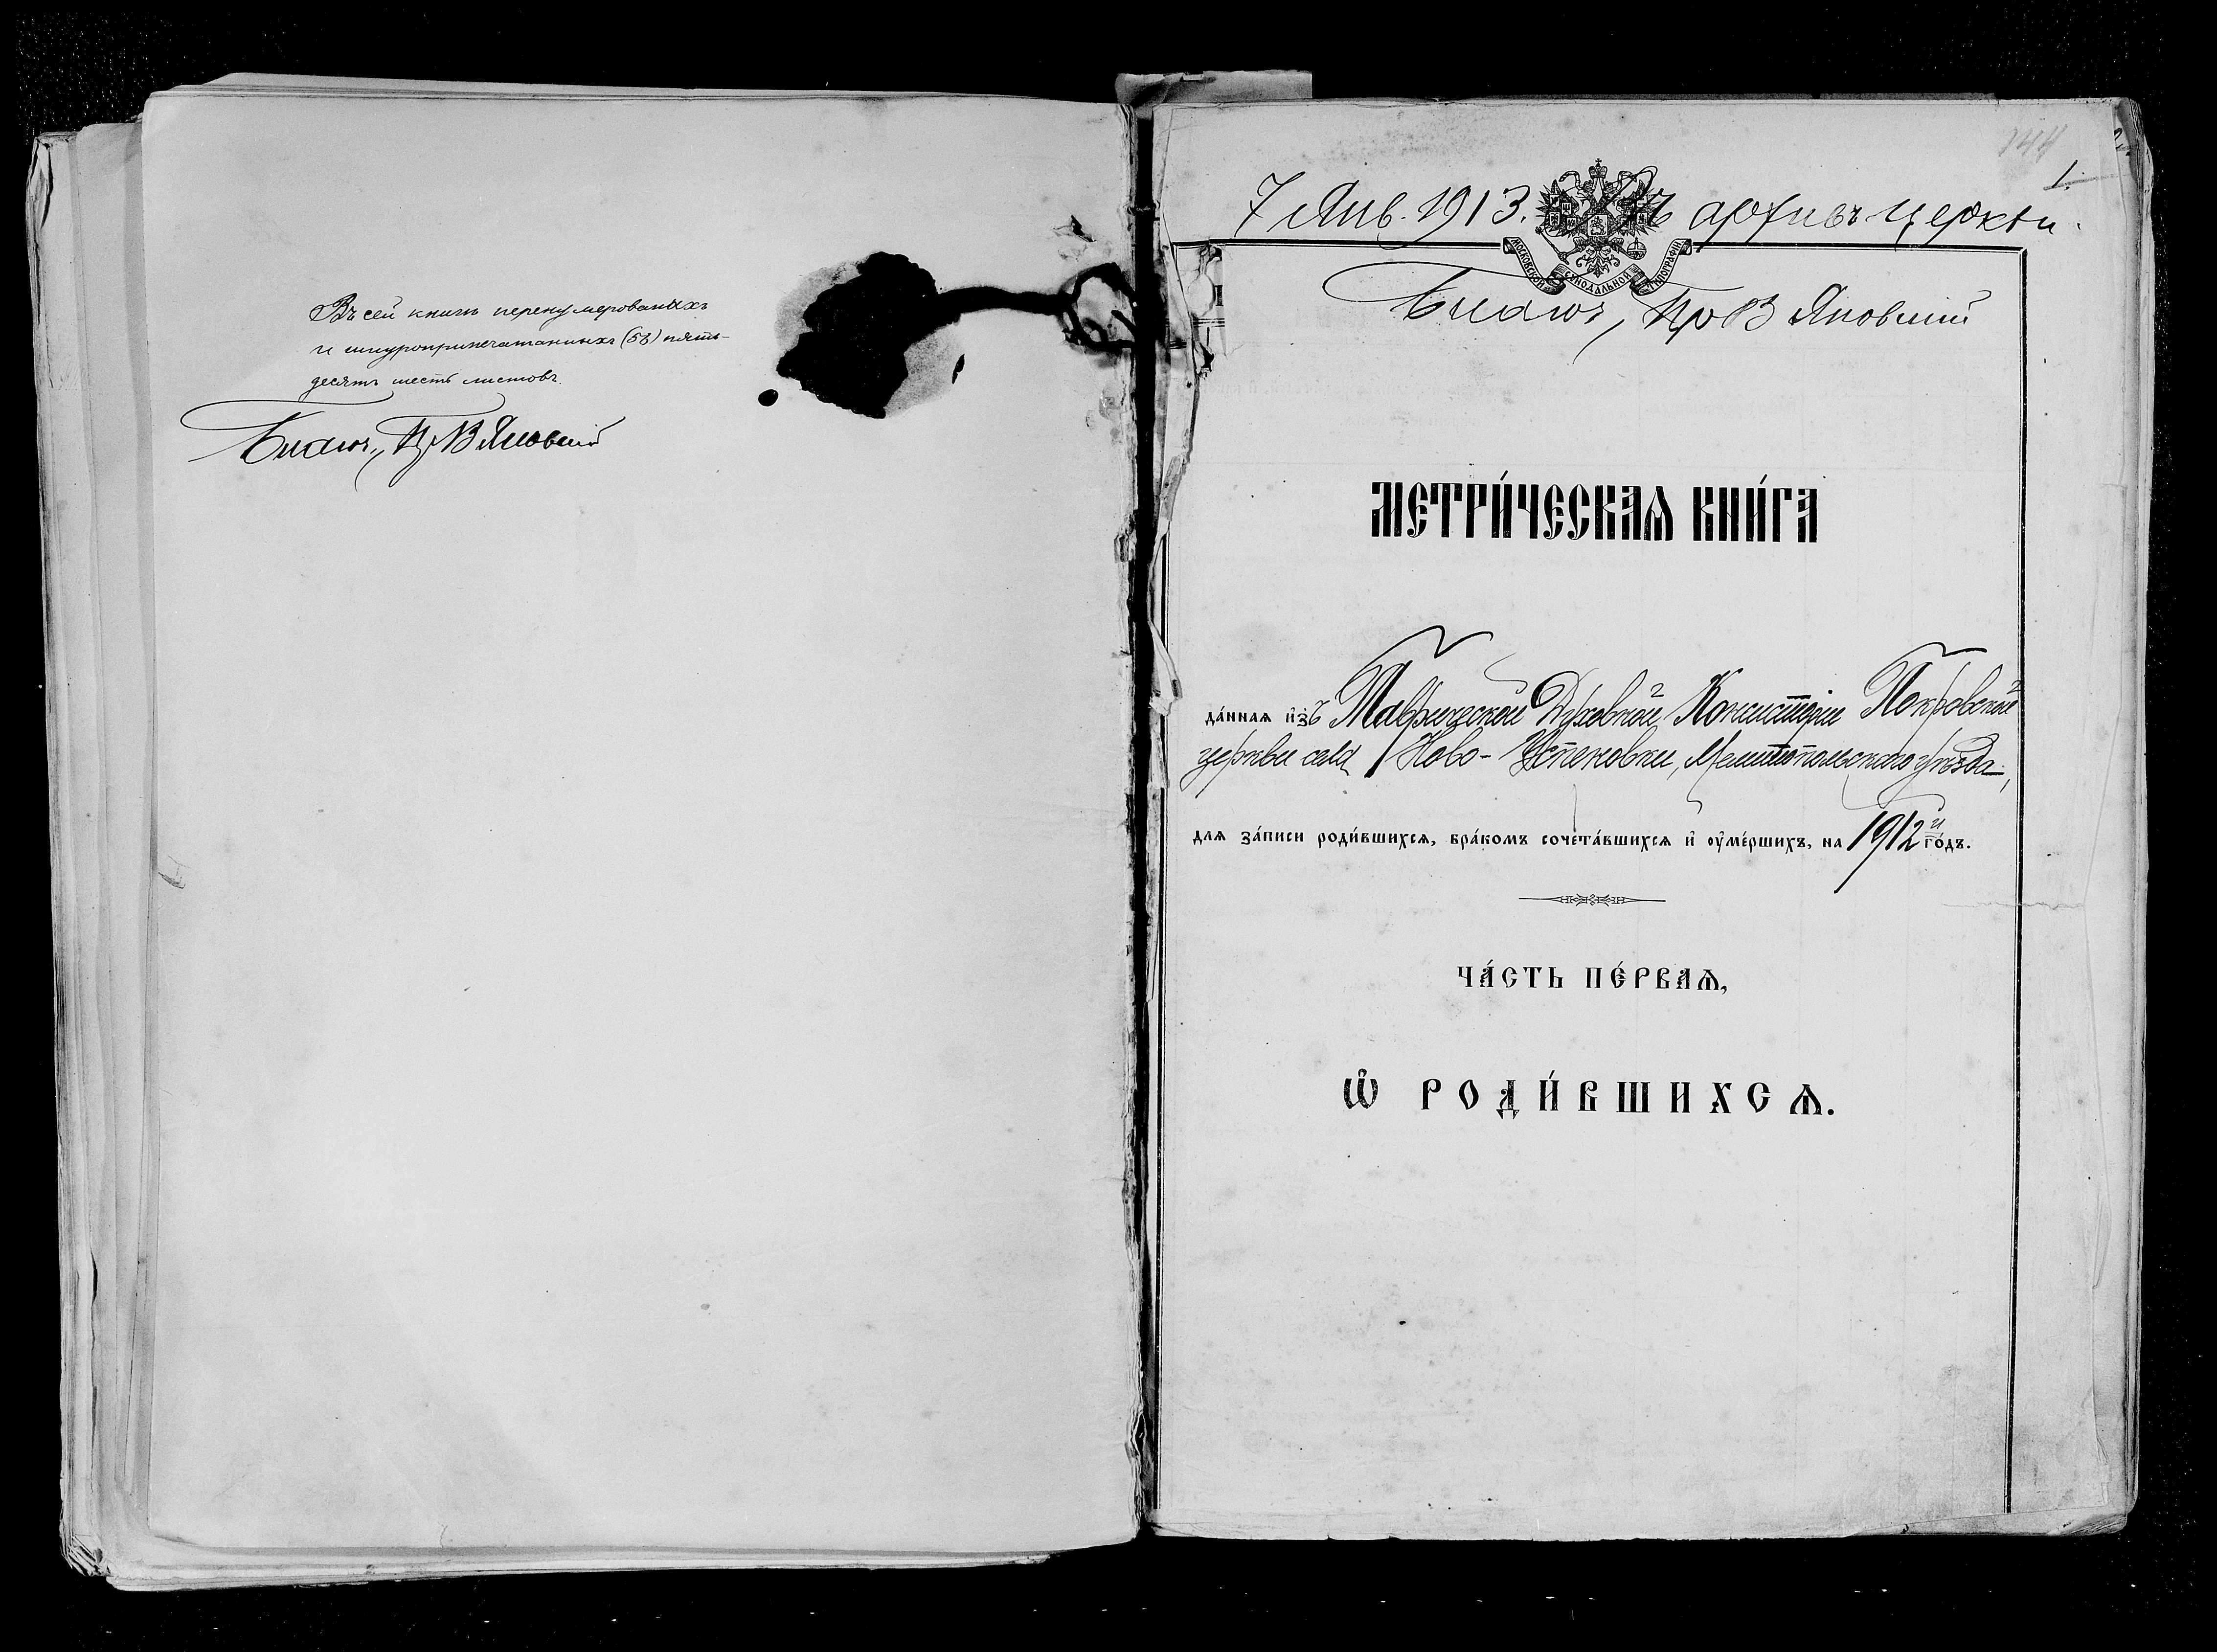 Въ сей книги перенумерованыхъ
и шнуроприпечатанныхъ (56) пять-
десятъ шесть листовъ.
Благоч., Пр В Яновскій
144
1.
7 Янв. 1913. Въ архивъ церкви.
МОСКОВСКОЙ СѴНОДАЛЬНОЙ ТИПОГРАФІИ
Благоч, Про В Яновскій
МЕТРИ́ЧЕСКАѦ КНИ́ГА
да́ннаѧ и҆зъ Таврической Духовной Консисторіи Покровской
церкви села Ново-Успеновки, Мелитопольскаго уѣзда,
длѧ за́писи роди́вшихсѧ, бра́комъ сочета́вшихсѧ и҆ оу҆ме́ршихъ, на 1912й го́дъ.
ЧА́СТЬ ПЕ́РВАѦ,
Ѽ РОДИ́ВШИХСѦ.